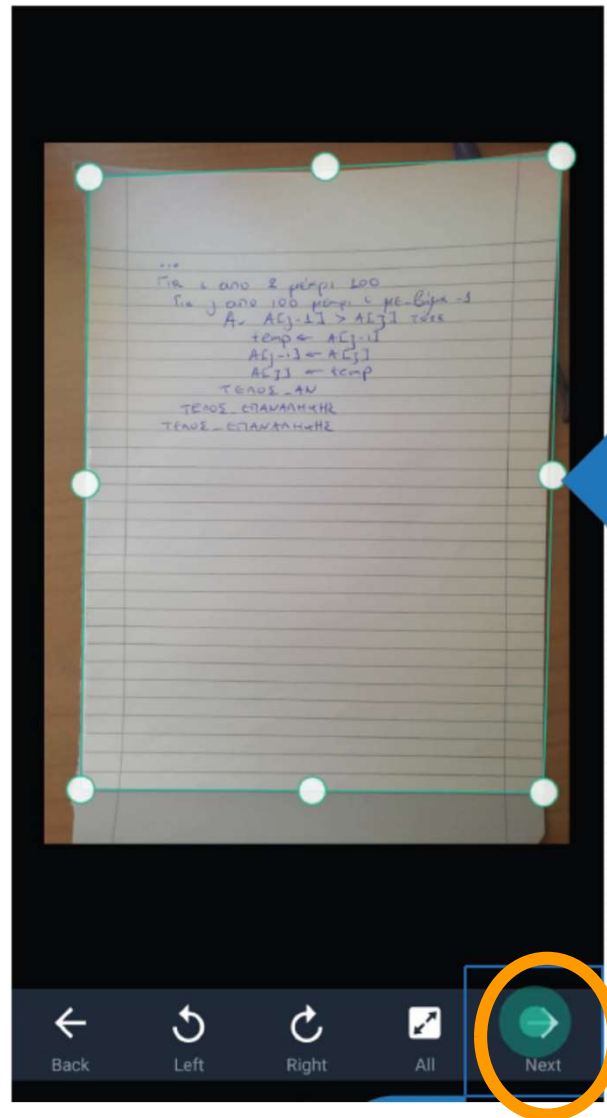 ...
Για ι απο 2 μέχρι 100
Για j απο 100 μέχρι ι με_βήμα -1
Αν A[j-1] > A[j] τοτε
temp ← A[j-1]
A[j-1] ← A[j]
A[j] ← temp
ΤΕΛΟΣ_ΑΝ
ΤΕΛΟΣ_ΕΠΑΝΑΛΗΨΗΣ
ΤΕΛΟΣ_ΕΠΑΝΑΛΗΨΗΣ
Back Left Right All Next